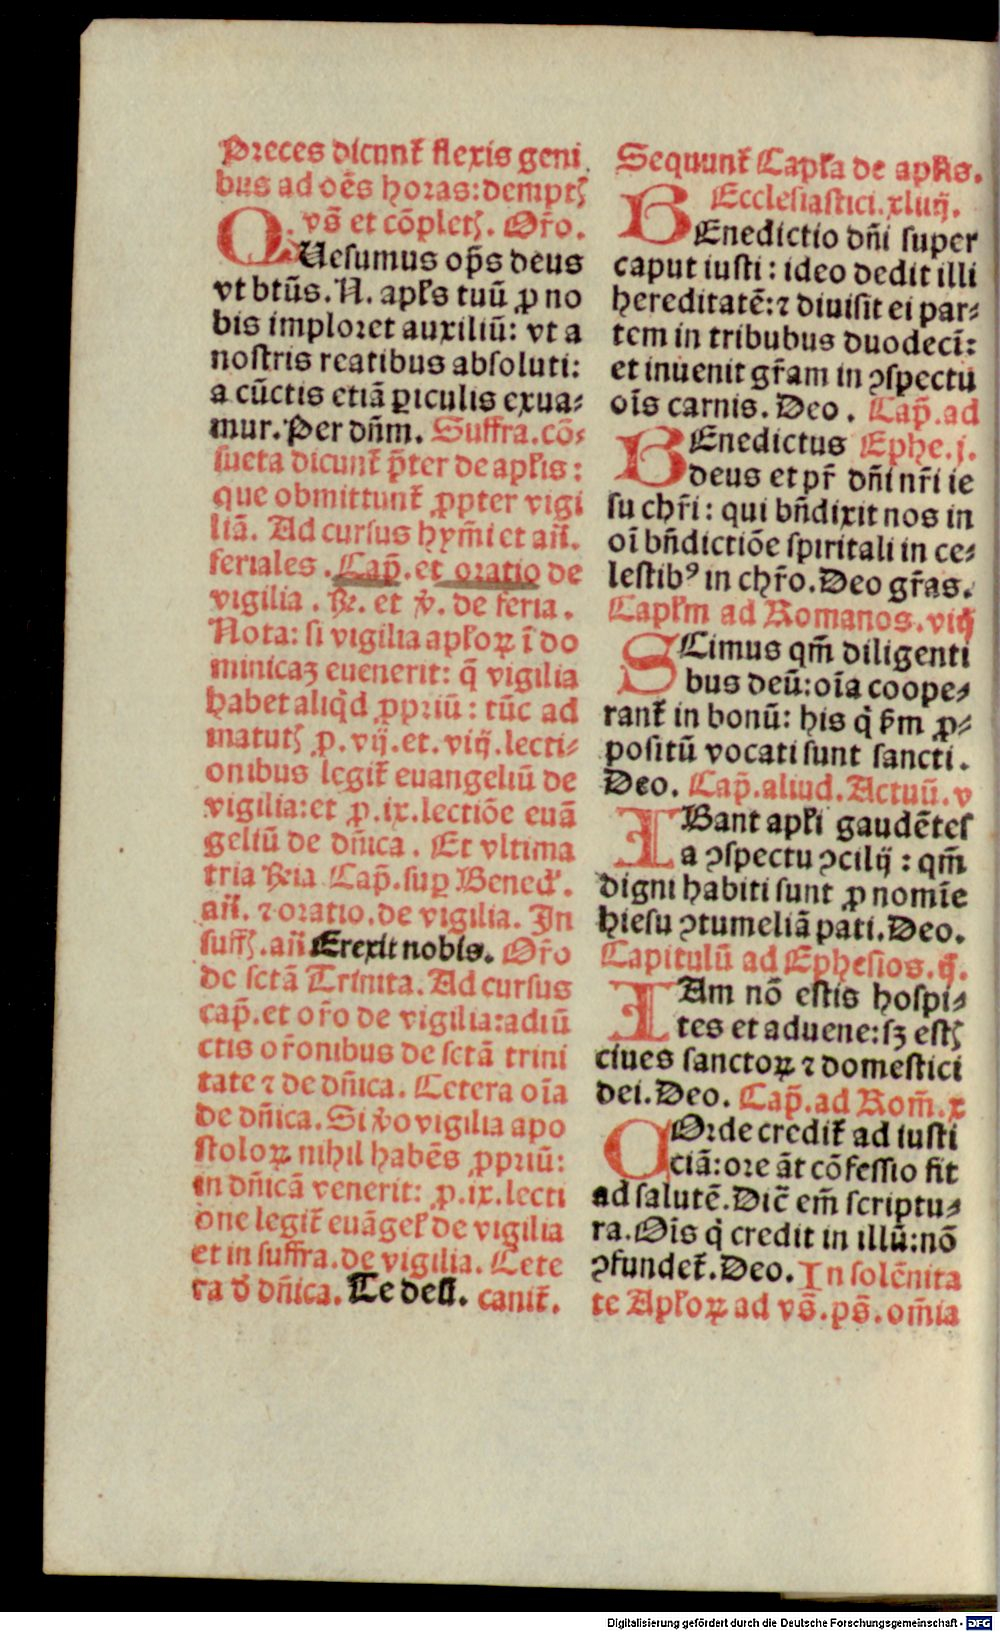 Preces dicunt᷑ flexis geni
bus ad oēs horas: demptꝭ
vs̄ et cōpletꝭ. Or̄o.
QUesumus op̄s deus
vt btūs. N. apl̄s tuū ꝓ no
bis imploret auxiliū: vt a
nostris reatibus absoluti:
a cūctis etiā ꝑiculis exua⸗
mur. Per dn̄m. Suffra. cō⸗
sueta dicunt᷑ p̄ter de apl̄is:
que obmittunt᷑ ꝓpter vigi
liā. Ad cursus hym̄i et an̄.
feriales. Cap̄. et oratio de
vigilia. ℟. et ℣. de feria.
Nota: si vigilia apl̄oꝝ ī do
minicaꝫ euenerit: q̄ vigilia
habet aliq̇d ꝓpriū: tūc ad
matutꝭ ꝓ. vij. et. viij. lecti⸗
onibus legit᷑ euangeliū de
vigilia: et ꝓ. ix. lectiōe euā
geliū de dn̄ica. Et vltima
tria ℟ia Cap̄. suꝑ Bened̄.
an̄. ⁊ oratio. de vigilia. In
suffꝭ. an̄ Erexit nobis. Or̄o
de sctā Trinita. Ad cursus
cap̄. et or̄o de vigilia: adiū
ctis or̄onibus de sctā trini
tate ⁊ de dn̄ica. Cetera oīa
de dn̄ica. Si v̇o vigilia apo
stoloꝝ nihil habēs ꝓpriū:
in dn̄icā venerit: ꝓ. ix. lecti
one legit᷑ euāgel̄ de vigilia
et in suffra. de vigilia. Cete
ra d̄ dn̄ica. Te deū. canit᷑.
Sequunt᷑ Capl̄a de apl̄is.
Ecclesiastici. xliiij.
BEnedictio dn̄i super
caput iusti: ideo dedit illi
hereditatē: ⁊ diuisit ei par⸗
tem in tribubus duodecī:
et inuenit gr̄am in ꝯspectu
oīs carnis. Deo. Cap̄. ad
BEnedictus Ephe. j.
deus et pr̄ dn̄i nr̄i ie
su chr̄i: qui bn̄dixit nos in
oī bn̄dictiōe spiritali in ce⸗
lestibꝰ in chr̄o. Deo gr̄as.
Capl̄m ad Romanos. viij
SCimus qm̄ diligenti
bus deū: oīa coope⸗
rant᷑ in bonū: his q̇ ẜm ꝓ⸗
positū vocati sunt sancti.
Deo. Cap̄. aliud. Actuū. v
IBant apl̄i gaudētes
a ꝯspectu ꝯcilij: qm̄
digni habiti sunt ꝓ nomīe
hiesu ꝯtumeliā pati. Deo.
Capitulū ad Ephesios. ij.
IAm nō estis hospi⸗
tes et aduene: sꝫ estꝭ
ciues sanctoꝝ ⁊ domestici
dei. Deo. Cap̄. ad Rom̄. x
COrde credit᷑ ad iusti
ciā: ore āt cōfessio fit
ad salutē. Dic̄ em̄ scriptu⸗
ra. Oīs q̇ credit in illū: nō
ꝯfundet᷑. Deo. In solēnita
te Apl̄oꝝ ad vs̄. ps̄. om̄ia
Digitalisierung gefördert durch die Deutsche Forschungsgemeinschaft - DFG